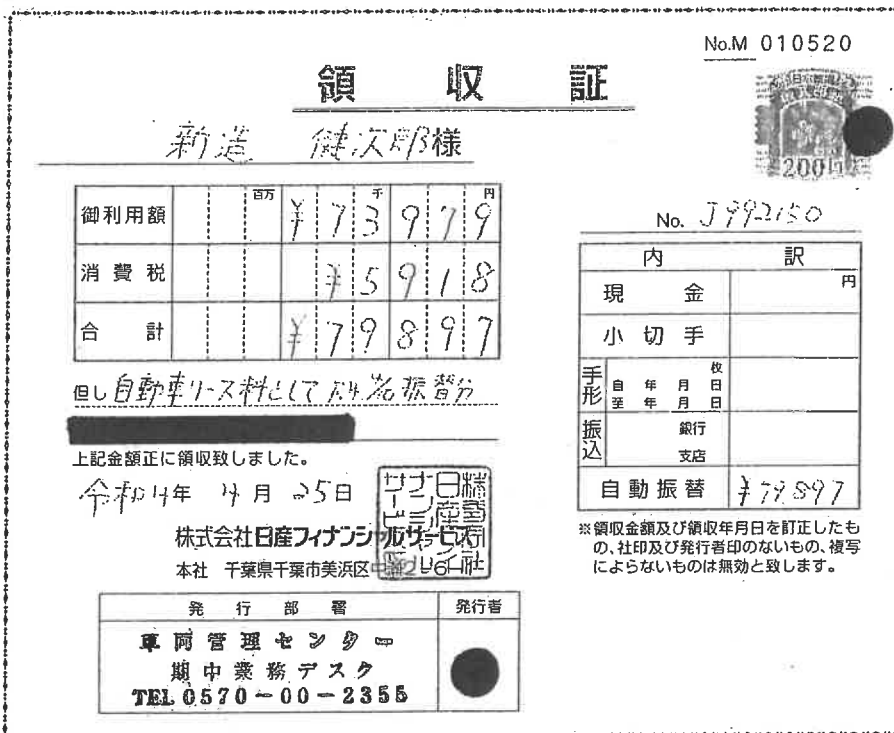 No.M 010520
領収証
新造 健次郎様
200円
百万 千 円
御利用額 ¥73979
消費税 ¥5918
合計 ¥79897
但し自動車リース料として
上記金額正に領収致しました。
令和4年 4月 25日
株式会社日産フィナンシャルサービス
本社 千葉県千葉市美浜区中瀬2-6-1
発行部署 発行者
車両管理センター
期中業務デスク
TEL 0570-00-2355
No. J992150
内訳
現金 円
小切手
手形 枚
自 年 月 日
至 年 月 日
振込 銀行
支店
自動振替 ¥79,897
※領収金額及び領収年月日を訂正したも
の、社印及び発行者印のないもの、複写
によらないものは無効と致します。